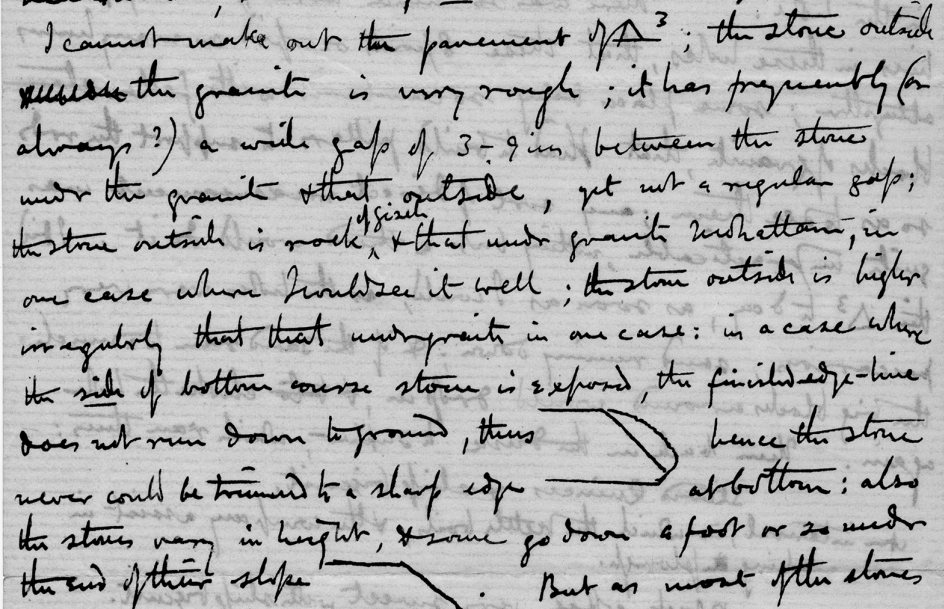 I cannot make out the pavement of Δ³; the stone outside
the granite is very rough; it has frequently (or
always?) a wide gap of 3-9 ins between the stone
under the granite & that outside, yet not a regular gap;
of Gizeh
the stone outside is rock, & that under granite Mokattam, in
one case where I could see it well; the stone outside is higher
irregularly that that under granite in one case: in a case where
the side of bottom course stone is exposed, the finished edge-line
does not run down to ground, thus hence the stone
never could be trimmed to a sharp edge at bottom: also
the stones vary in height, & some go down a foot or so under
the end of their slope . But as most of the stones